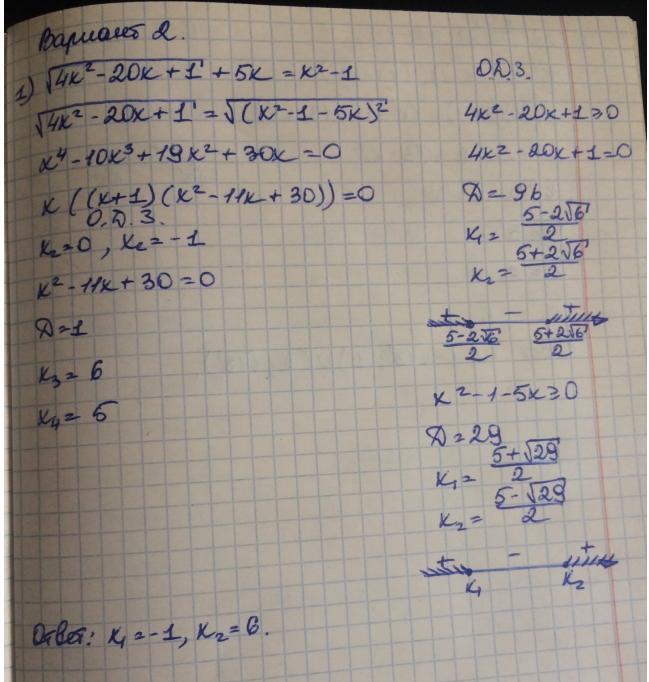 Вариант 2.
1) √(4x² - 20x + 1) + 5x = x² - 1
√(4x² - 20x + 1) = √((x² - 1 - 5x)²)
x⁴ - 10x³ + 19x² + 30x = 0
x ((x+1)(x² - 11x + 30)) = 0
О.Д.З.
x₂ = 0, x₂ = -1
x² - 11x + 30 = 0
Д = 1
x₃ = 6
x₄ = 5
О.Д.З.
4x² - 20x + 1 ≥ 0
4x² - 20x + 1 = 0
Д = 96
x₁ = (5 - 2√6)/2
x₂ = (5 + 2√6)/2
+ - +
(5 - 2√6)/2 (5 + 2√6)/2
x² - 1 - 5x ≥ 0
Д = 29
x₁ = (5 + √29)/2
x₂ = (5 - √29)/2
+ - +
x₁ x₂
Ответ: x₁ = -1, x₂ = 6.